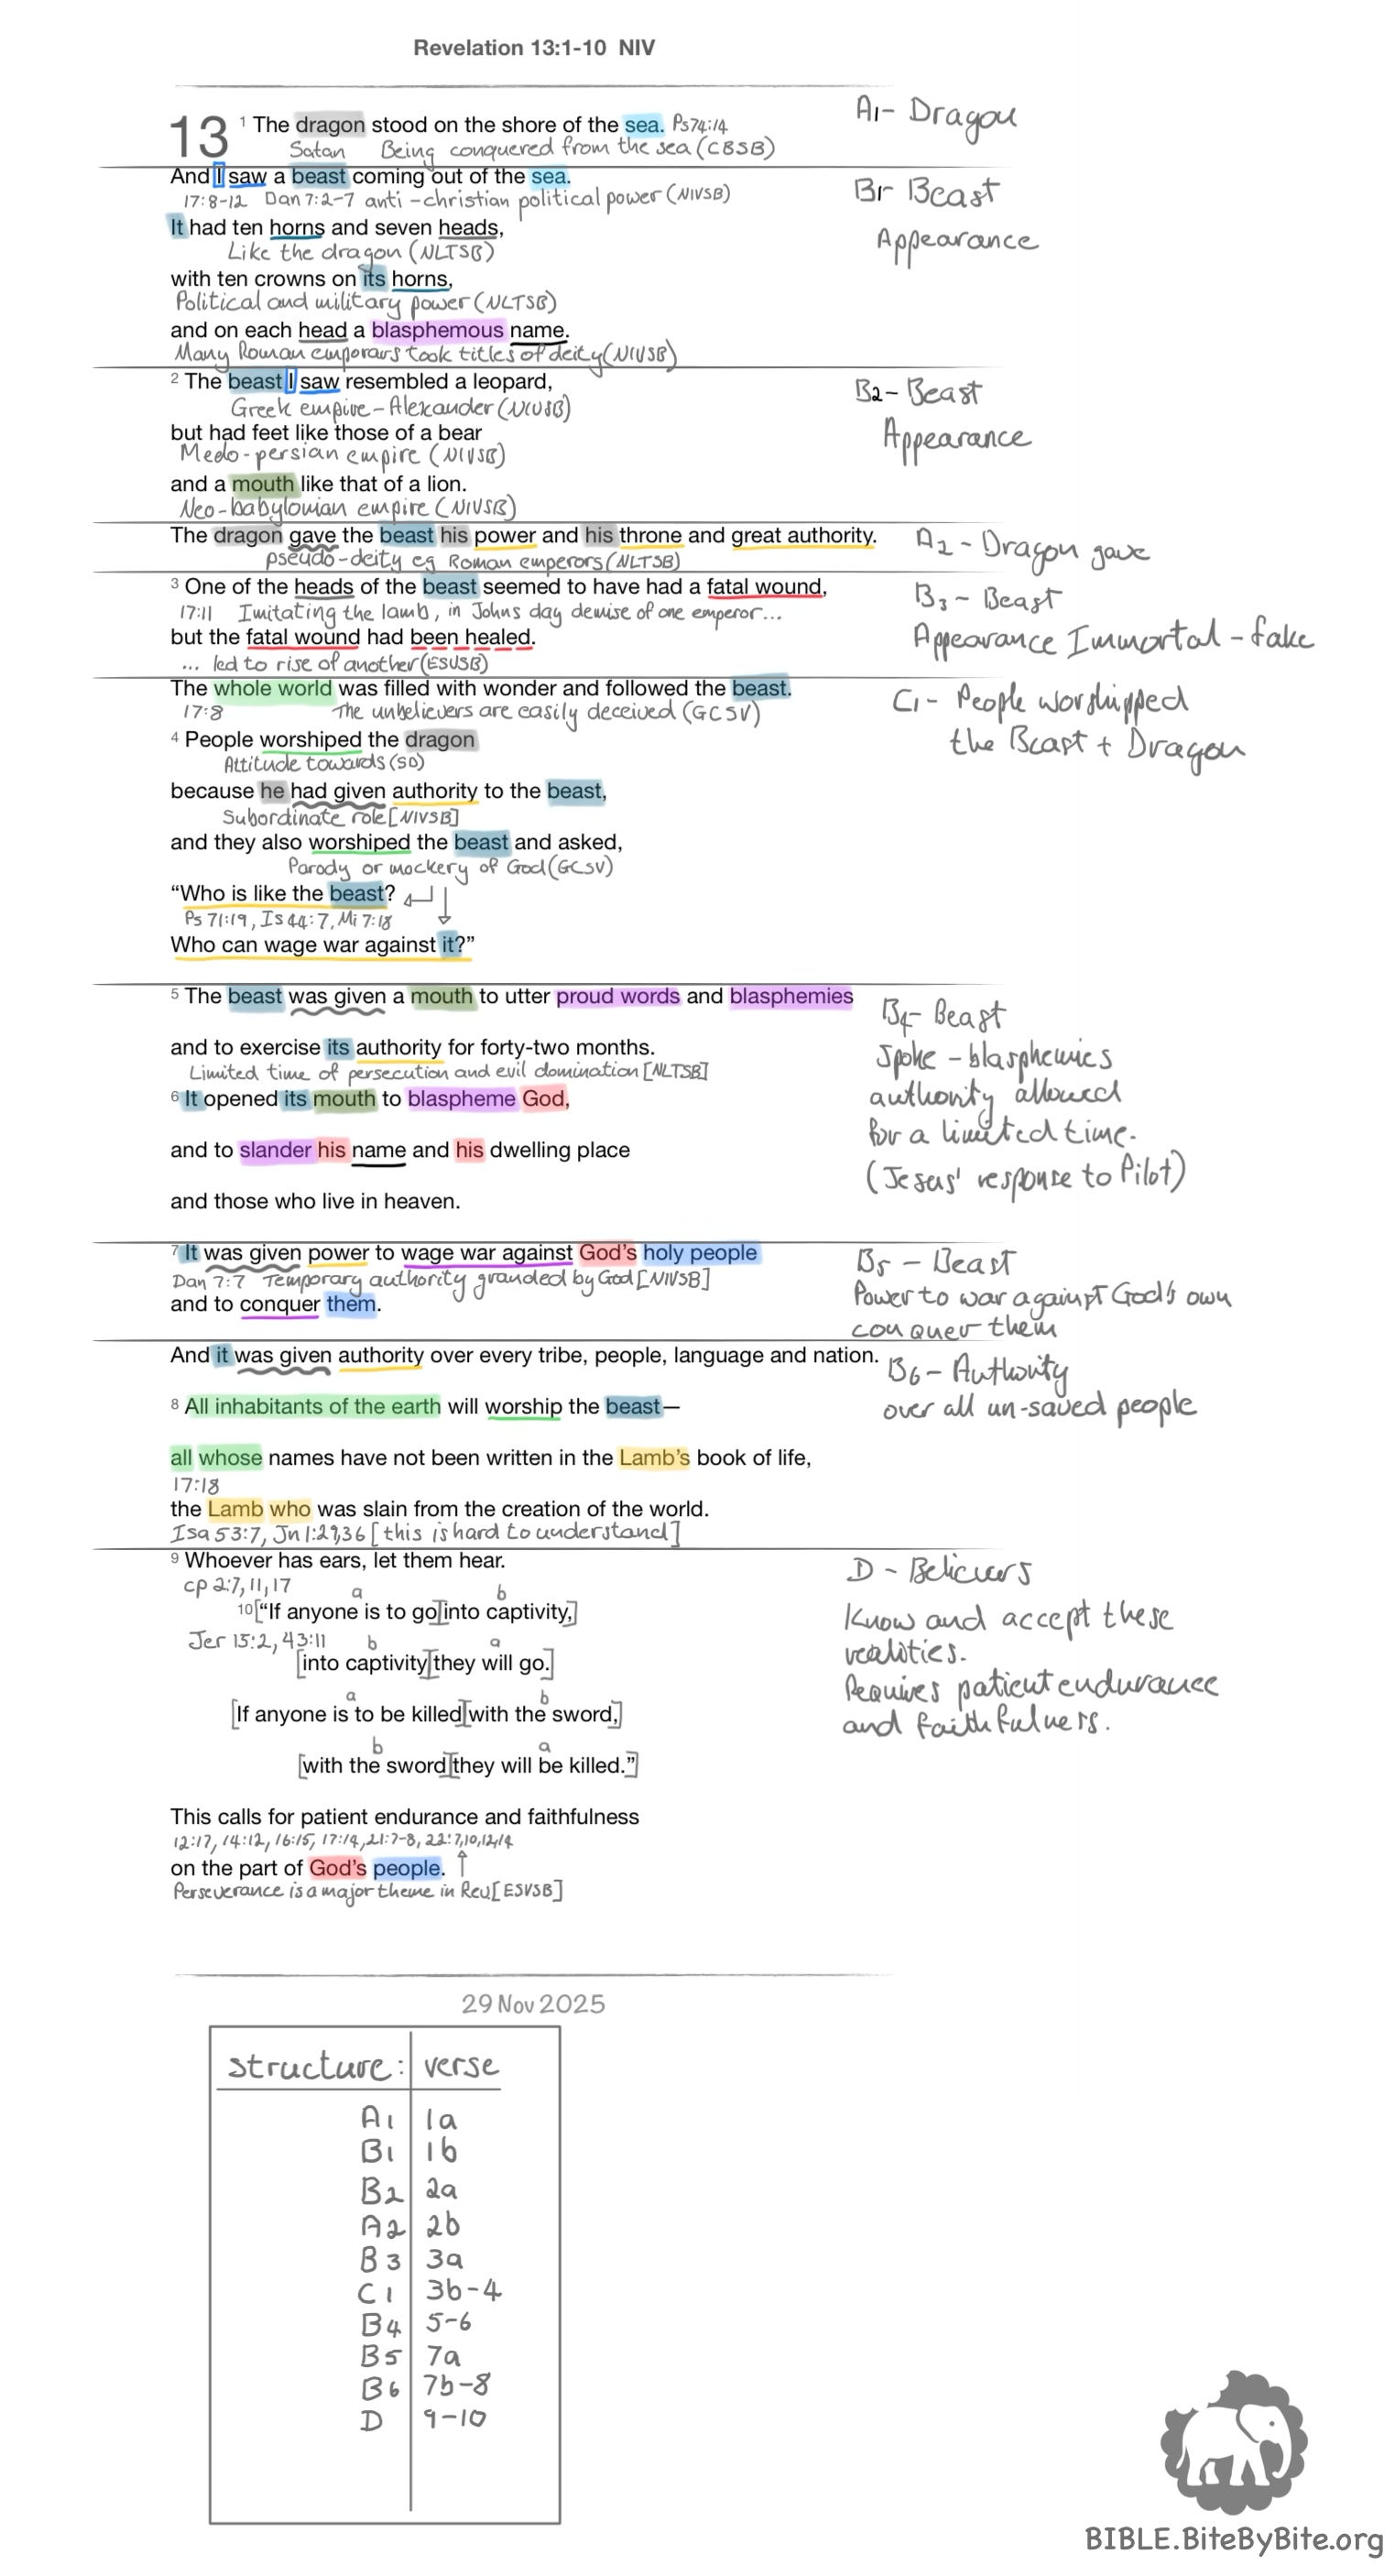 Revelation 13:1-10 NIV
13 1 The dragon stood on the shore of the sea. Ps74:14
A1- Dragon
Satan Being conquered from the sea (CBSB)
And I saw a beast coming out of the sea.
B1- Beast
17:8-12 Dan 7:2-7 anti-christian political power (NIVSB)
It had ten horns and seven heads,
Appearance
Like the dragon (NLTSB)
with ten crowns on its horns,
Political and military power (NLTSB)
and on each head a blasphemous name.
Many Roman emporars took titles of deity (NIVSB)
2 The beast I saw resembled a leopard,
B2- Beast
Greek empire - Alexander (NIVSB)
but had feet like those of a bear
Appearance
Medo-persian empire (NIVSB)
and a mouth like that of a lion.
Neo-babylonian empire (NIVSB)
The dragon gave the beast his power and his throne and great authority.
A2 - Dragon gave
pseudo-deity eg Roman emperors (NLTSB)
3 One of the heads of the beast seemed to have had a fatal wound,
B3 - Beast
17:11 Imitating the lamb, in Johns day demise of one emperor...
but the fatal wound had been healed.
Appearance Immortal - fake
... led to rise of another (ESVSB)
The whole world was filled with wonder and followed the beast.
C1 - People worshipped
17:8 The unbelievers are easily deceived (GCSV)
4 People worshiped the dragon
the Beast + Dragon
Attitude towards (SD)
because he had given authority to the beast,
Subordinate role [NIVSB]
and they also worshiped the beast and asked,
Parody or mockery of God (GCSV)
“Who is like the beast?
Ps 71:19, Is 44:7, Mi 7:18
Who can wage war against it?”
5 The beast was given a mouth to utter proud words and blasphemies
B4- Beast
and to exercise its authority for forty-two months.
Spoke - blasphemies
Limited time of persecution and evil domination [NLTSB]
6 It opened its mouth to blaspheme God,
authority allowed
for a limited time.
and to slander his name and his dwelling place
(Jesus' response to Pilot)
and those who live in heaven.
7 It was given power to wage war against God’s holy people
B5 - Beast
Dan 7:7 Temporary authority granded by God [NIVSB]
Power to war against God's own
and to conquer them.
conquer them
And it was given authority over every tribe, people, language and nation.
B6 - Authority
8 All inhabitants of the earth will worship the beast—
over all un-saved people
all whose names have not been written in the Lamb’s book of life,
17:18
the Lamb who was slain from the creation of the world.
Isa 53:7, Jn 1:29,36 [this is hard to understand]
9 Whoever has ears, let them hear.
D - Believers
cp 2:7, 11, 17
a b
10 [“If anyone is to go] [into captivity,]
Know and accept these
Jer 15:2, 43:11 b a
realities.
[into captivity] [they will go.]
Requires patient endurance
a b
[If anyone is to be killed] [with the sword,]
and faithfulness.
b a
[with the sword] [they will be killed.”]
This calls for patient endurance and faithfulness
12:17, 14:12, 16:15, 17:14, 21:7-8, 22:7,10,12,14
on the part of God’s people.
Perseverance is a major theme in Rev [ESVSB]
29 Nov 2025
structure: verse
A1 1a
B1 1b
B2 2a
A2 2b
B3 3a
C1 3b-4
B4 5-6
B5 7a
B6 7b-8
D 9-10
BIBLE.BiteByBite.org